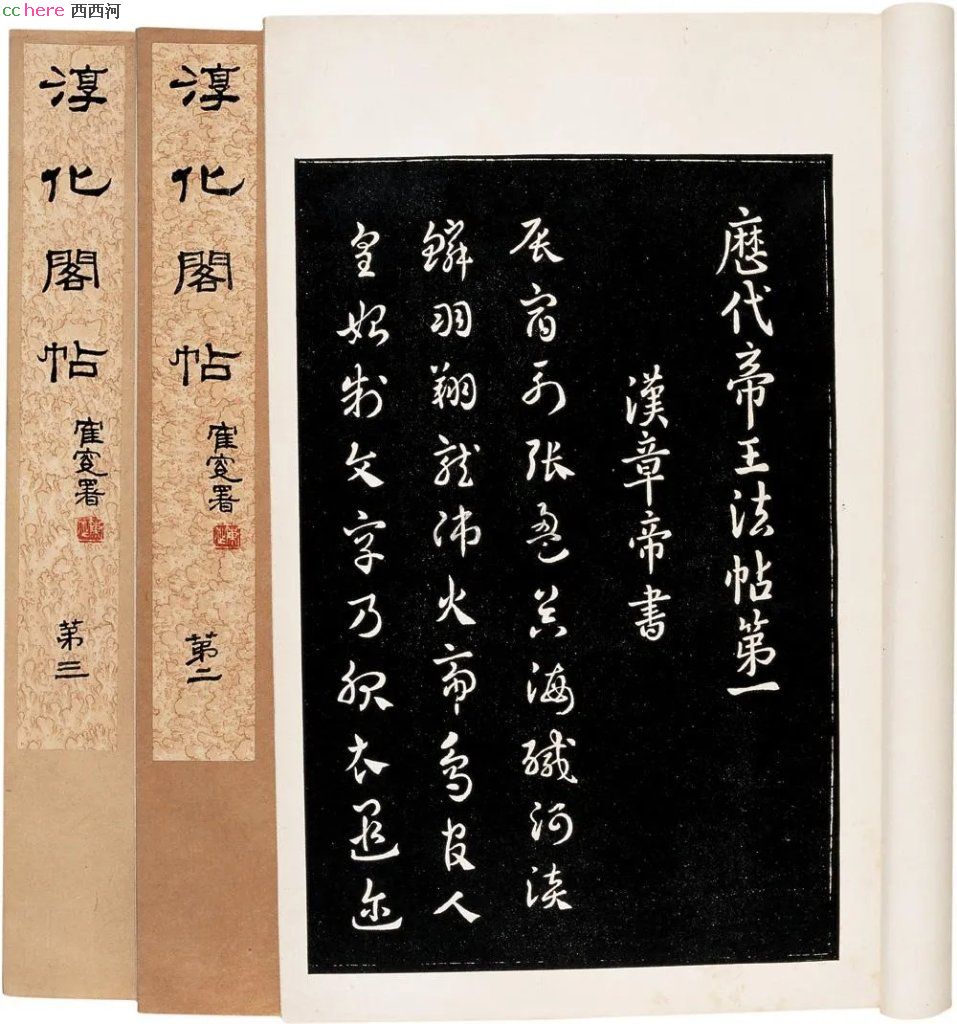 cchere 西西河
厯代帝王法帖第一
漢章帝書
辰宿列張盈海鹹河淡
鱗羽翔龍師火帝鳥官人
皇始制文字乃服衣遐迩
淳化閣帖
署
第二
淳化閣帖
署
第三